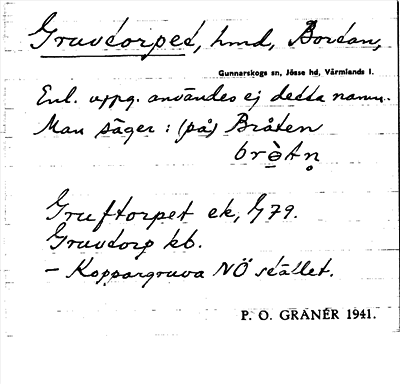 Gruvtorpet, hmd, Bortan,
Gunnarskogs sn, Jösse hd, Värmlands l.
Enl. uppg. användes ej detta namn.
Man säger: (på) Bråten
brò̤tn̥
Gruftorpet ek, G79.
Gruvtorp kb.
– Koppargruva NÖ stället.
P. O. GRANÉR 1941.